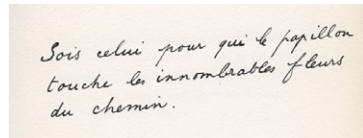 Sois celui pour qui le papillon
touche les innombrables fleurs
du chemin.